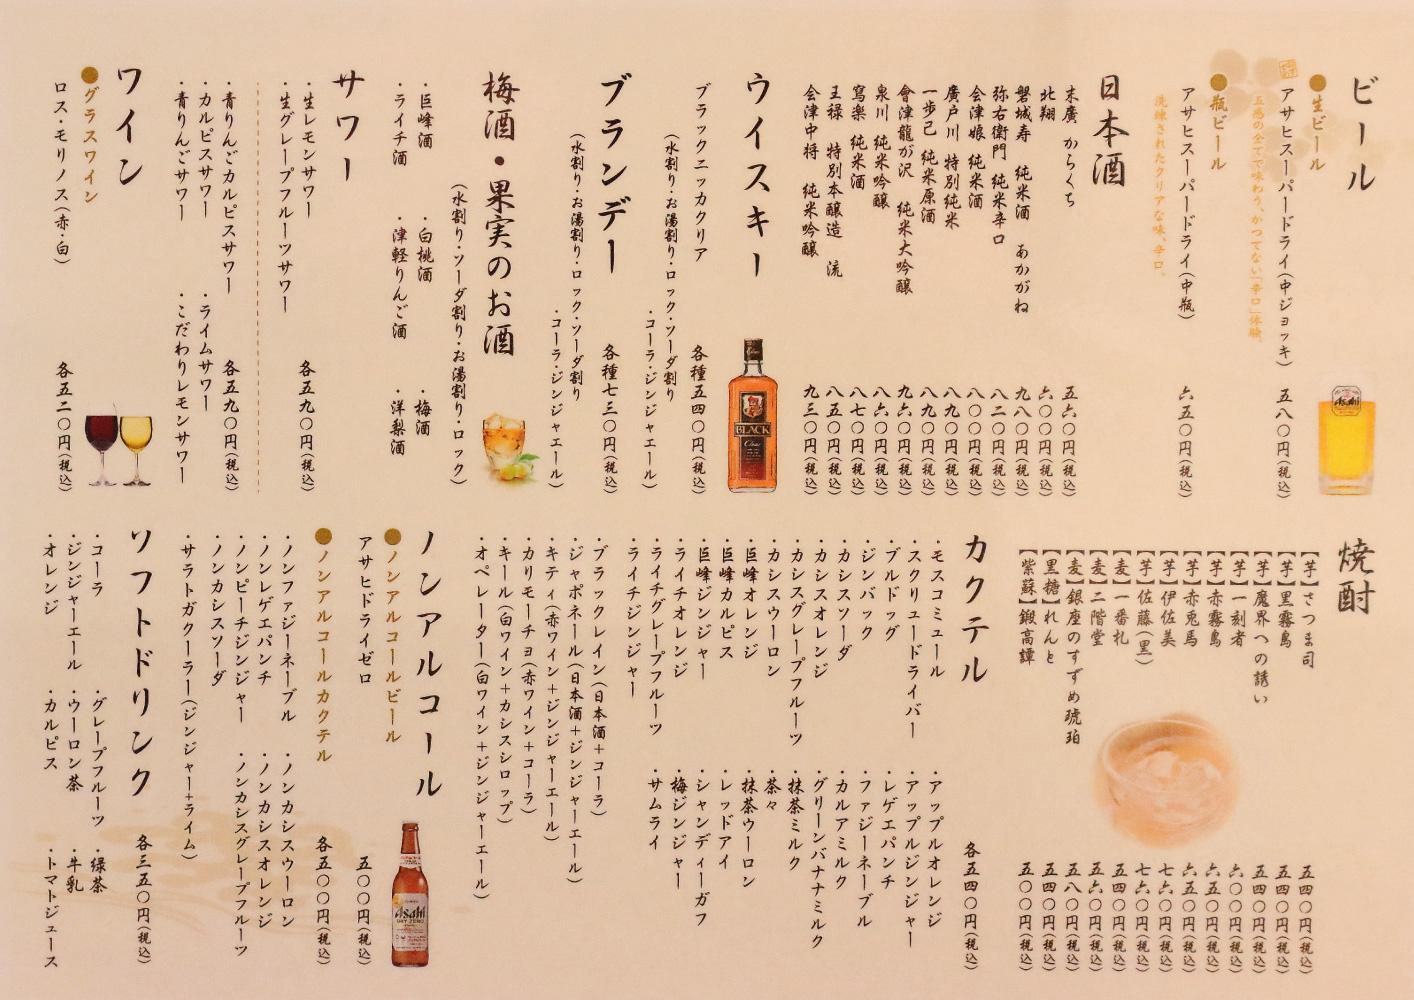 ビール
●生ビール
アサヒスーパードライ(中ジョッキ) 五八〇円(税込)
五感の全てで味わう、かつてない「辛口」体験。
●瓶ビール
アサヒスーパードライ(中瓶) 六五〇円(税込)
洗練されたクリアな味、辛口。
日本酒
末廣 からくち 五六〇円(税込)
北翔 六〇〇円(税込)
磐城寿 純米酒 あかがね 九八〇円(税込)
弥右衛門 純米辛口 八二〇円(税込)
会津娘 純米酒 八〇〇円(税込)
廣戸川 特別純米 八九〇円(税込)
一歩己 純米原酒 八九〇円(税込)
會津龍が沢 純米大吟醸 九六〇円(税込)
泉川 純米吟醸 八六〇円(税込)
寫楽 純米酒 八七〇円(税込)
王禄 特別本醸造 流 八五〇円(税込)
会津中将 純米吟醸 九三〇円(税込)
ウイスキー
ブラックニッカクリア 各種五四〇円(税込)
(水割り・お湯割り・ロック・ソーダ割り
・コーラ・ジンジャエール)
BLACK
Clear
ブランデー
各種七三〇円(税込)
(水割り・お湯割り・ロック・ソーダ割り
・コーラ・ジンジャエール)
梅酒・果実のお酒
(水割り・ソーダ割り・お湯割り・ロック)
・巨峰酒 ・白桃酒 ・梅酒
・ライチ酒 ・津軽りんご酒 ・洋梨酒
サワー
・生レモンサワー 各五九〇円(税込)
・生グレープフルーツサワー
・青りんごカルピスサワー 各五九〇円(税込)
・カルピスサワー ・ライムサワー
・青りんごサワー ・こだわりレモンサワー
ワイン
●グラスワイン
ロス・モリノス(赤・白) 各五二〇円(税込)
焼酎
【芋】さつま司 五四〇円(税込)
【芋】黒霧島 五四〇円(税込)
【芋】魔界への誘い 五四〇円(税込)
【芋】一刻者 六〇〇円(税込)
【芋】赤霧島 六五〇円(税込)
【芋】赤兎馬 六五〇円(税込)
【芋】伊佐美 七六〇円(税込)
【芋】佐藤(黒) 七六〇円(税込)
【麦】一番札 五四〇円(税込)
【麦】二階堂 五六〇円(税込)
【麦】銀座のすずめ琥珀 五八〇円(税込)
【黒糖】れんと 五四〇円(税込)
【紫蘇】鍛高譚 五〇〇円(税込)
カクテル
各五四〇円(税込)
・モスコミュール ・アップルオレンジ
・スクリュードライバー ・アップルジンジャー
・ブルドッグ ・レゲエパンチ
・ジンバック ・ファジーネーブル
・カシスソーダ ・カルアミルク
・カシスオレンジ ・グリーンバナナミルク
・カシスグレープフルーツ ・抹茶ミルク
・カシスウーロン ・茶々
・巨峰オレンジ ・抹茶ウーロン
・巨峰カルピス ・レッドアイ
・巨峰ジンジャー ・シャンディーガフ
・ライチオレンジ ・梅ジンジャー
・ライチグレープフルーツ ・サムライ
・ライチジンジャー
・ブラックレイン(日本酒+コーラ)
・ジャポネール(日本酒+ジンジャーエール)
・キティ(赤ワイン+ジンジャーエール)
・カリモーチョ(赤ワイン+コーラ)
・キール(白ワイン+カシスシロップ)
・オペレーター(白ワイン+ジンジャーエール)
ノンアルコール
●ノンアルコールビール
アサヒドライゼロ 五〇〇円(税込)
Asahi
DRY ZERO
●ノンアルコールカクテル
各五〇〇円(税込)
・ノンファジーネーブル ・ノンカシスウーロン
・ノンレゲエパンチ ・ノンカシスオレンジ
・ノンピーチジンジャー ・ノンカシスグレープフルーツ
・ノンカシスソーダ
・サラトガクーラー(ジンジャー+ライム)
ソフトドリンク
各三五〇円(税込)
・コーラ ・グレープフルーツ ・緑茶
・ジンジャーエール ・ウーロン茶 ・牛乳
・オレンジ ・カルピス ・トマトジュース
Asahi